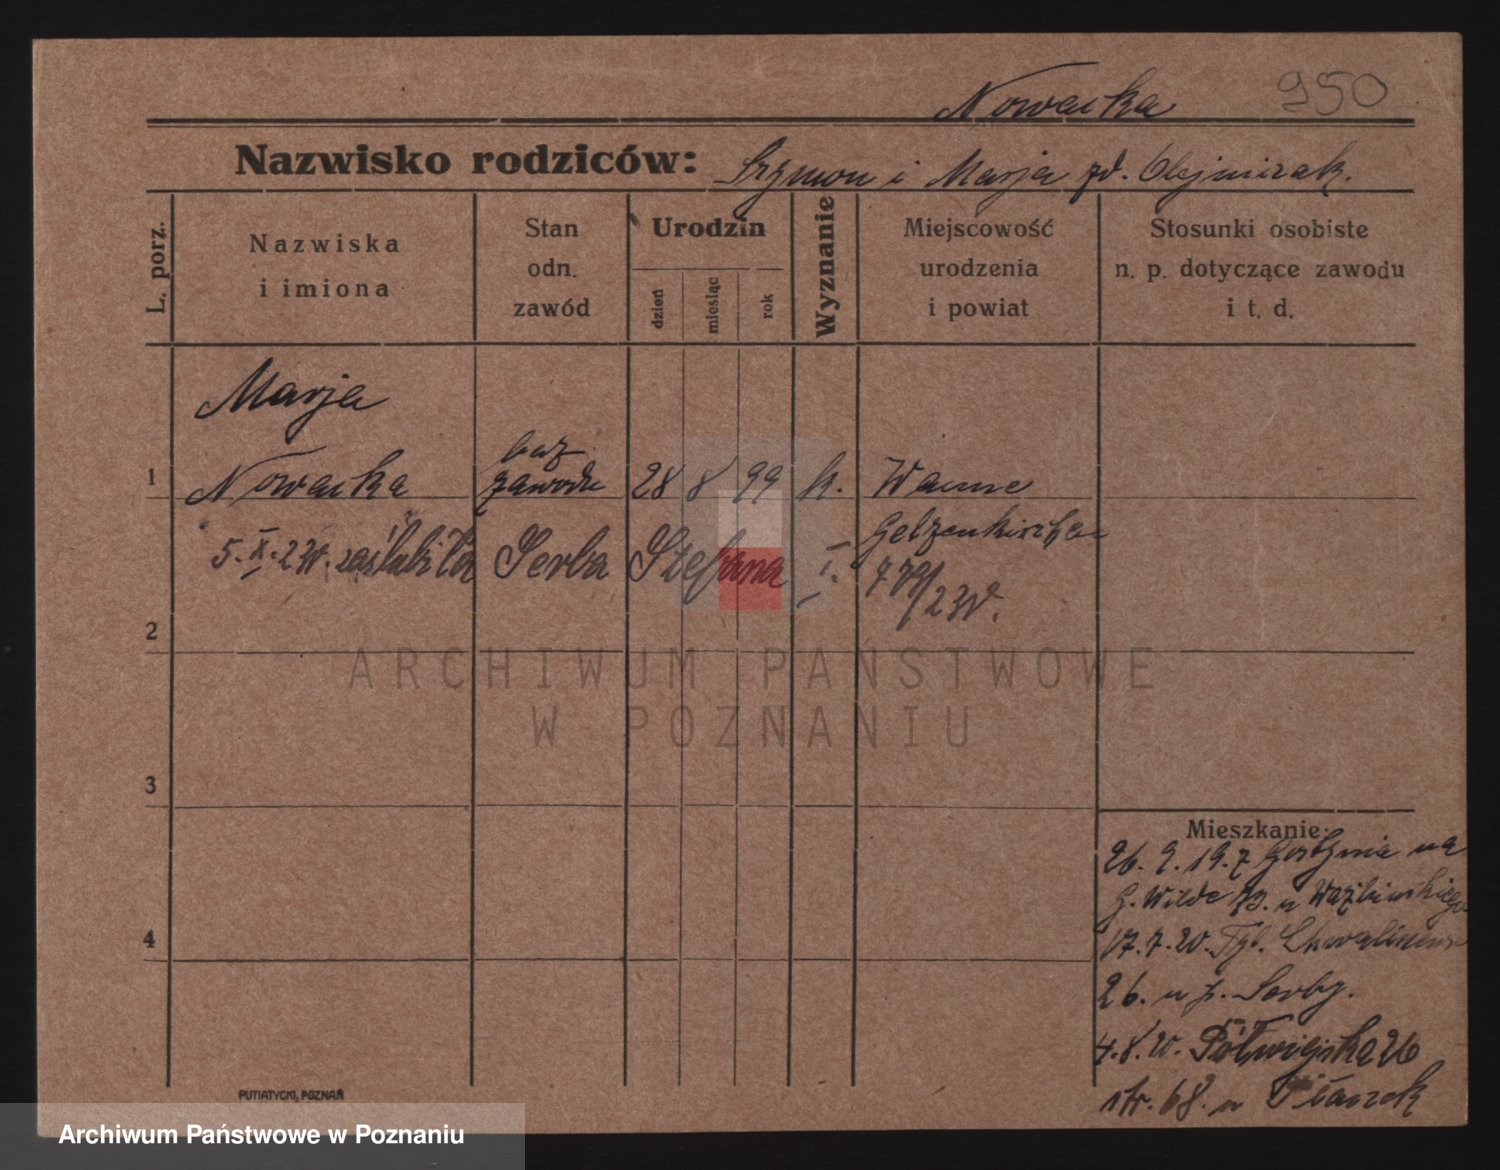 Nowacka 950
Nazwisko rodziców: Szymon i Marja zd. Olejniczak.
L. porz.
Nazwiska i imiona
Stan odn. zawód
Urodzin
dzień miesiąc rok
Wyznanie
Miejscowość urodzenia i powiat
Stosunki osobiste n. p. dotyczące zawodu i t. d.
Marja
bez
1 Nowacka zawodu 28 8 99 k. Wanne
Gelzenkirchen
5. X. 23r. zaślubiła Serba Stefana I. 779/23r.
2
ARCHIWUM PAŃSTWOWE
W POZNANIU
3
Mieszkanie:
26. 9. 19. z na
G. Wilde u
4 17. 7. 20.
26. u p. Serby.
4. 8. 20. Półwiejska 26
str. 68. u Ptaszek
PUTIATYCKI, POZNAŃ
Archiwum Państwowe w Poznaniu